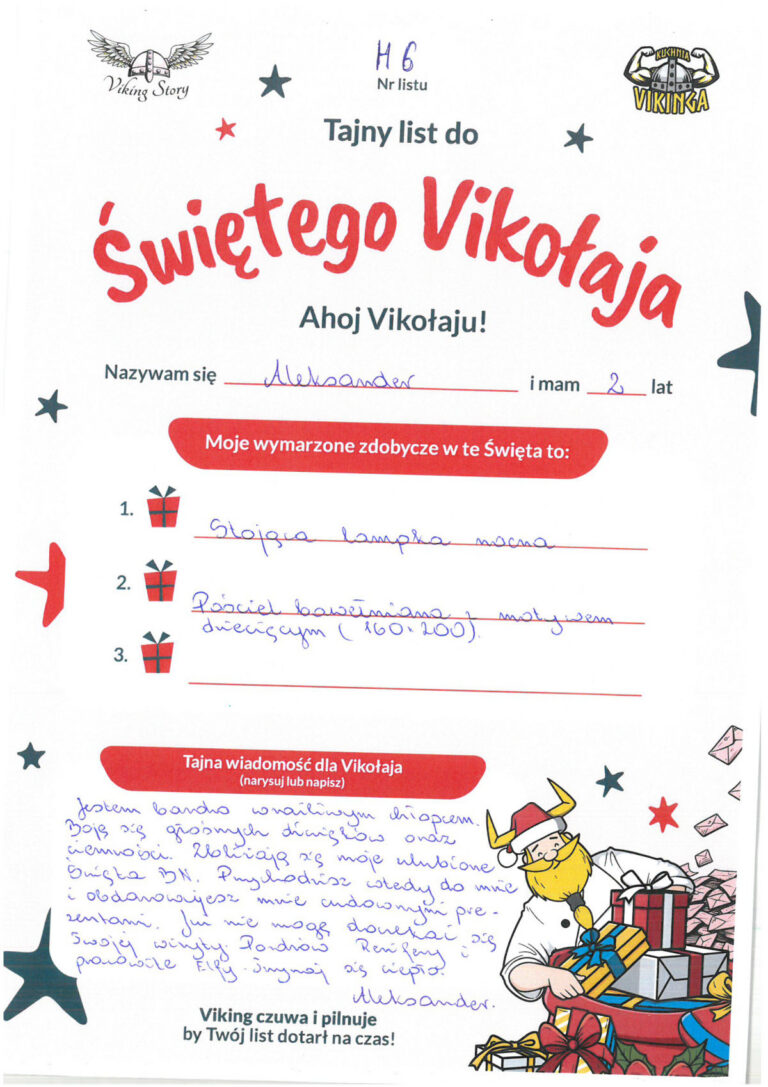 Viking Story
H 6
Nr listu
KUCHNIA
VIKINGA
Tajny list do
Świętego Vikołaja
Ahoj Vikołaju!
Nazywam się Aleksander i mam 2 lat
Moje wymarzone zdobycze w te Święta to:
1. Stojąca lampka nocna
2. Pościel bawełniana z motywem
dziecięcym (160x200).
3.
Tajna wiadomość dla Vikołaja
(narysuj lub napisz)
Jestem bardzo wrażliwym chłopcem.
Boję się głośnych dźwięków oraz
ciemności. Zbliżają się moje ulubione
Święta BN. Przychodzisz wtedy do mnie
i obdarowujesz mnie cudownymi pre-
zentami. Już nie mogę doczekać się
Twojej wizyty. Pozdrów Renifery i
pracowite Elfy. Trzymaj się ciepło.
Aleksander.
Viking czuwa i pilnuje
by Twój list dotarł na czas!